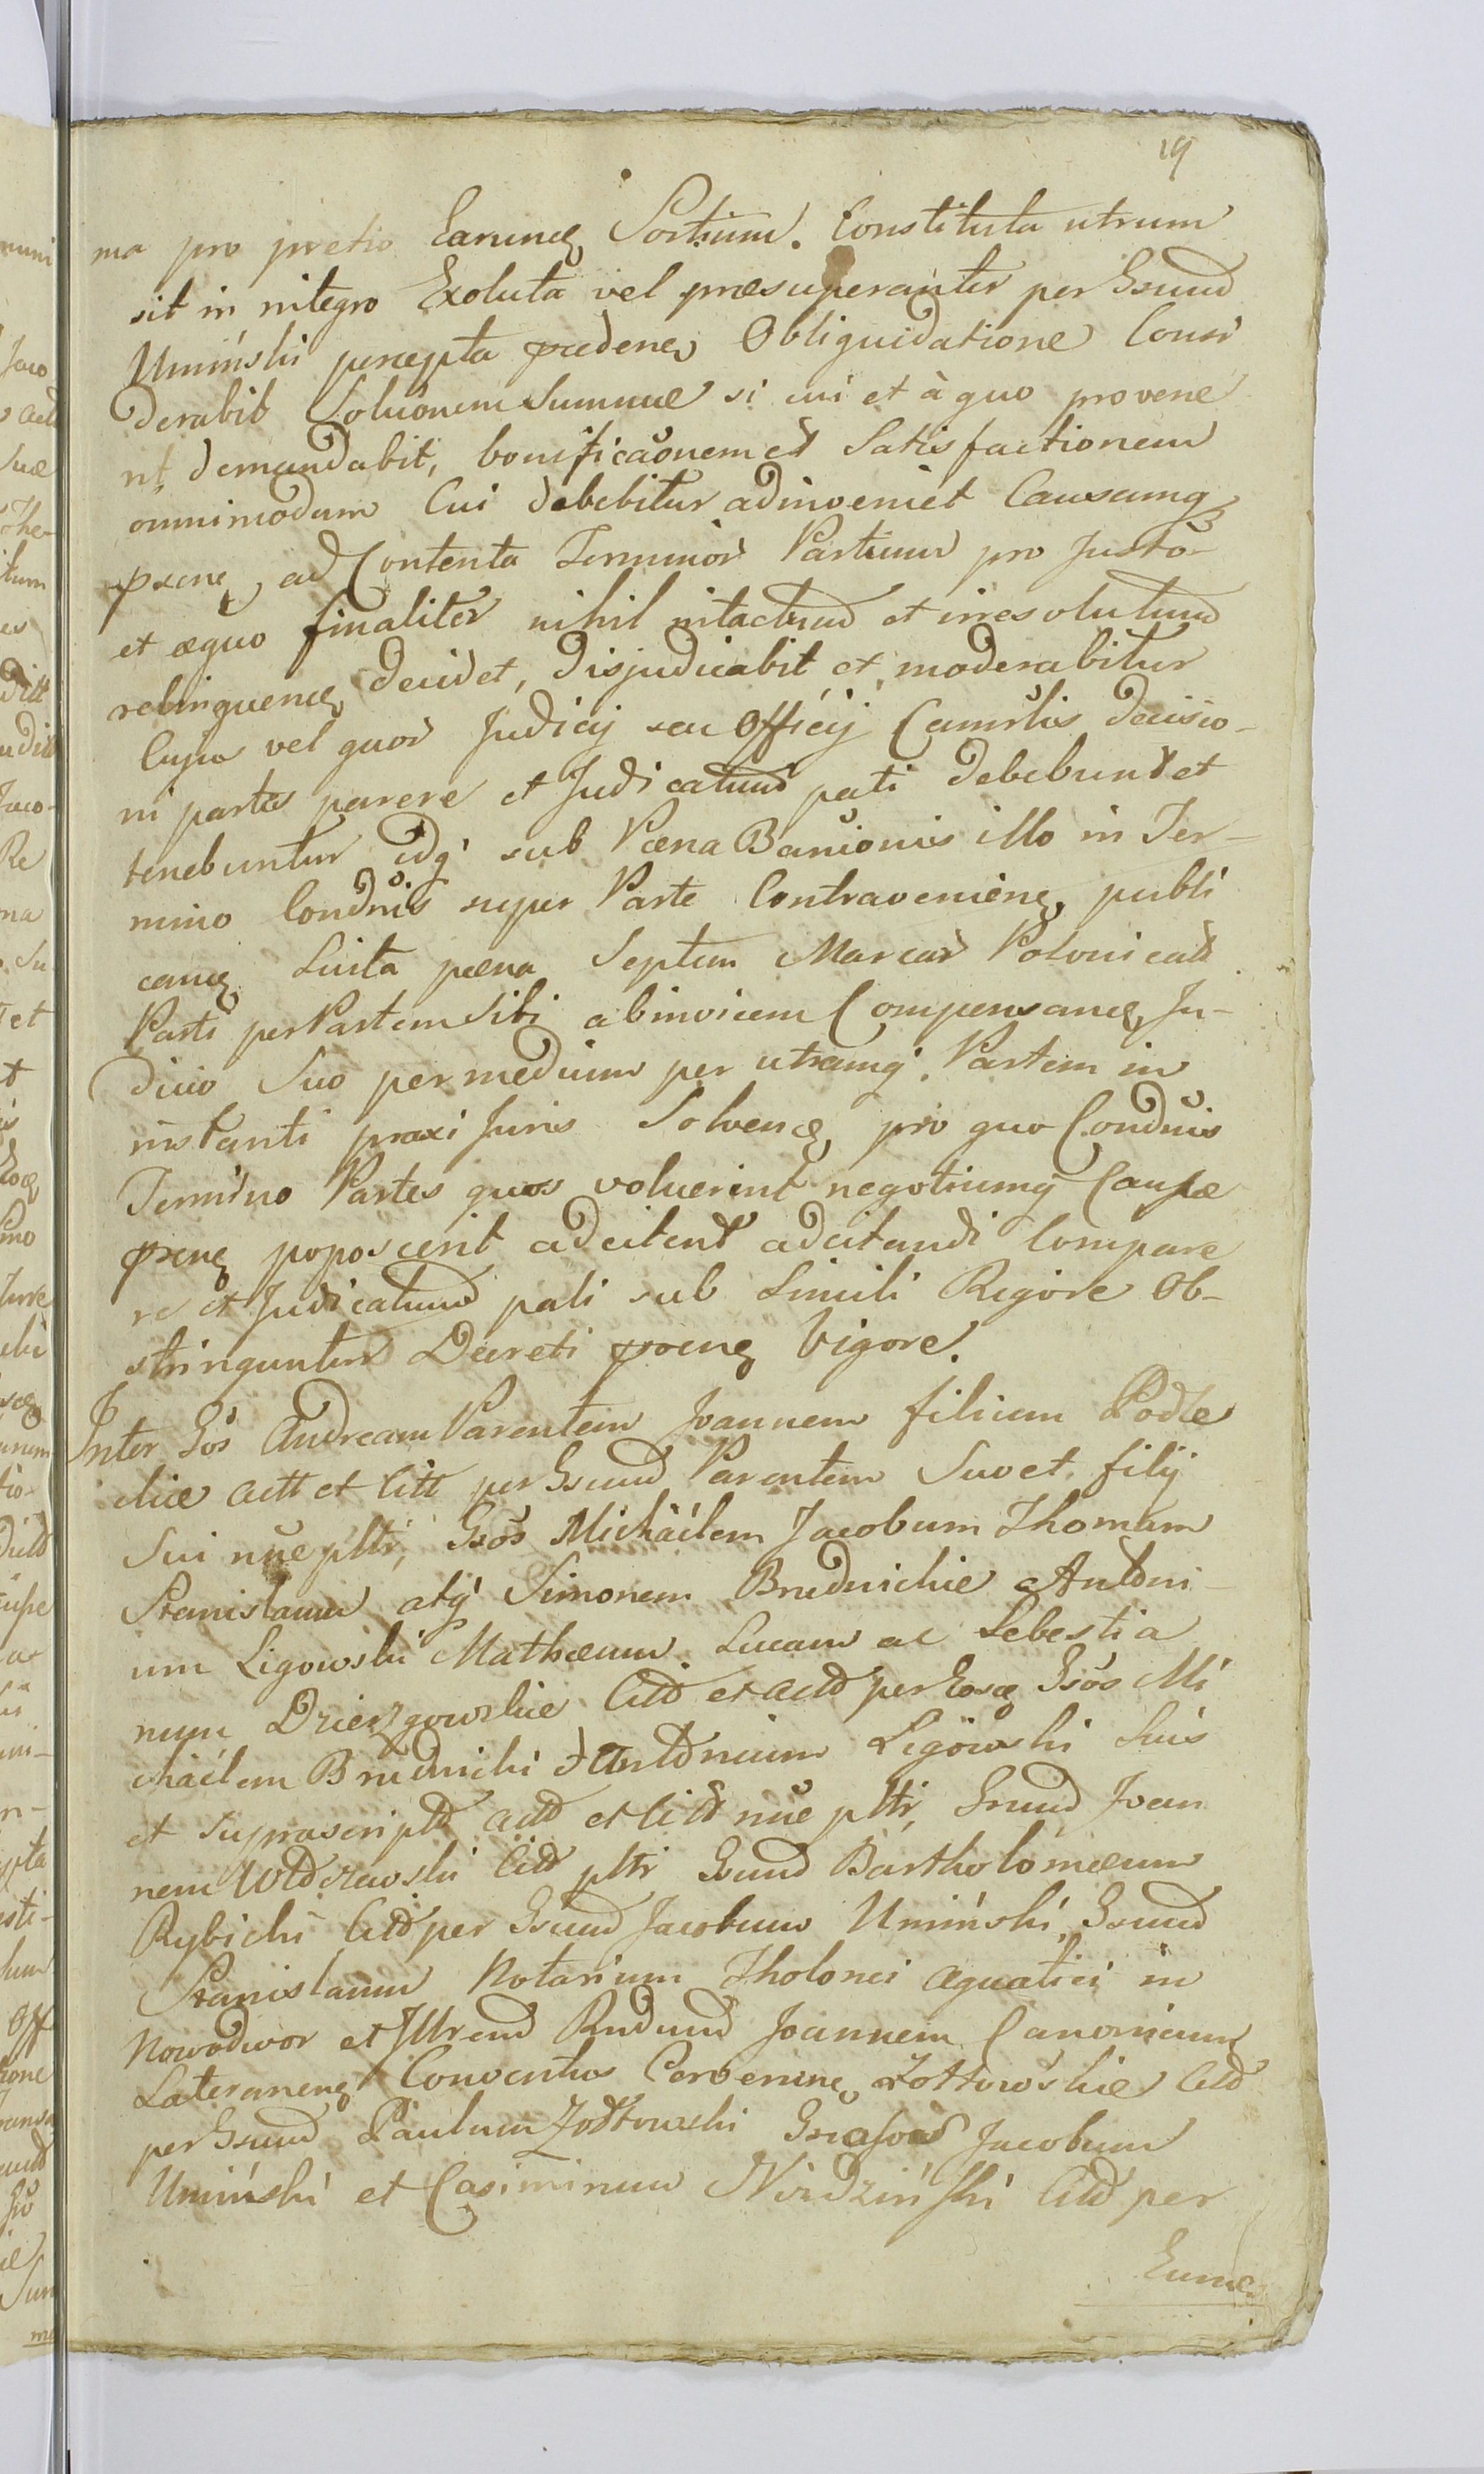 19
ma pro pretio Earundę Sortium. Constituta utrum
sit in integro Exoluta vel præsuperanter per Gsum̃
Umiński percepta prædenę Obliquidatione Consi
derabit Soluõnem Summæ si cui et à quo provene
rit demandabit, bonificaõnem et Satisfactionem
omnimodam Cui debebitur adinveniet Causamq
pñenę ad Contenta Terminor̃ Partium pro Justo
et æquo finaliter nihil intactum et irresolutum
relinquenę decidet, disjudicabit et moderabitur
Cujus vel quor̃ Judicij seu Officij Camr̃lis decisio-
ni partes parere et Judicatum pati debebunt et
tenebuntur idq sub Pæna Baniõnis illo in Ter-
mino Condñis super Parte Contravenienę publi
canę Luita pæna Septem Marcar̃ Polonical
Parti per Partem Sibi abinvicem Compensanę Ju-
dicio Suo per medium per utramq Partem in
instanti praxi Juris Solvenę pro quo Condñis
Termino Partes quos voluerint negotiumq Causæ
pñenę poposcerit adcitent adcitandi Compare
re et Judicatum pati sub Simili Rigore Ob-
stringuntur Decreti pñenę Vigore.
Inter Gõs Andream Parentem Joannem filium Podle
ckie Actt et Citt per Gsum̃ Parentem Suo et filij
Sui nñe pltr, Gsõs Michäelem Jacobum Thomam
Stanislaum atq Simonem Brudnickie Antoni
um Ligowski Mathæum Lucam ac Sebestia
num Dzierzgowskie Citt et Actt per Eosę Gsõs Mi
chäelem Brudnicki et Antonium Ligowski Suis
et Suprascriptt Actt et Citt nñe pltr, Gsum̃ Joan
nem Włoczewski Citt pltr Gsum̃ Bartholomæum
Rybicki Citt per Gsum̃ Jacobum Umiński, Gsum̃
Stanislaum Notarium Tholonei Aquatici in
Nowodwor et Jllrem̃ Rndum̃ Joannem Canonicum
Lateranenę Conventus Cervenenę Żołtowskie Citt
per Gsum̃ Paulum Żołtowski Jacobum
Umiński et Casimirum Niedzinski Citt per
Eumę